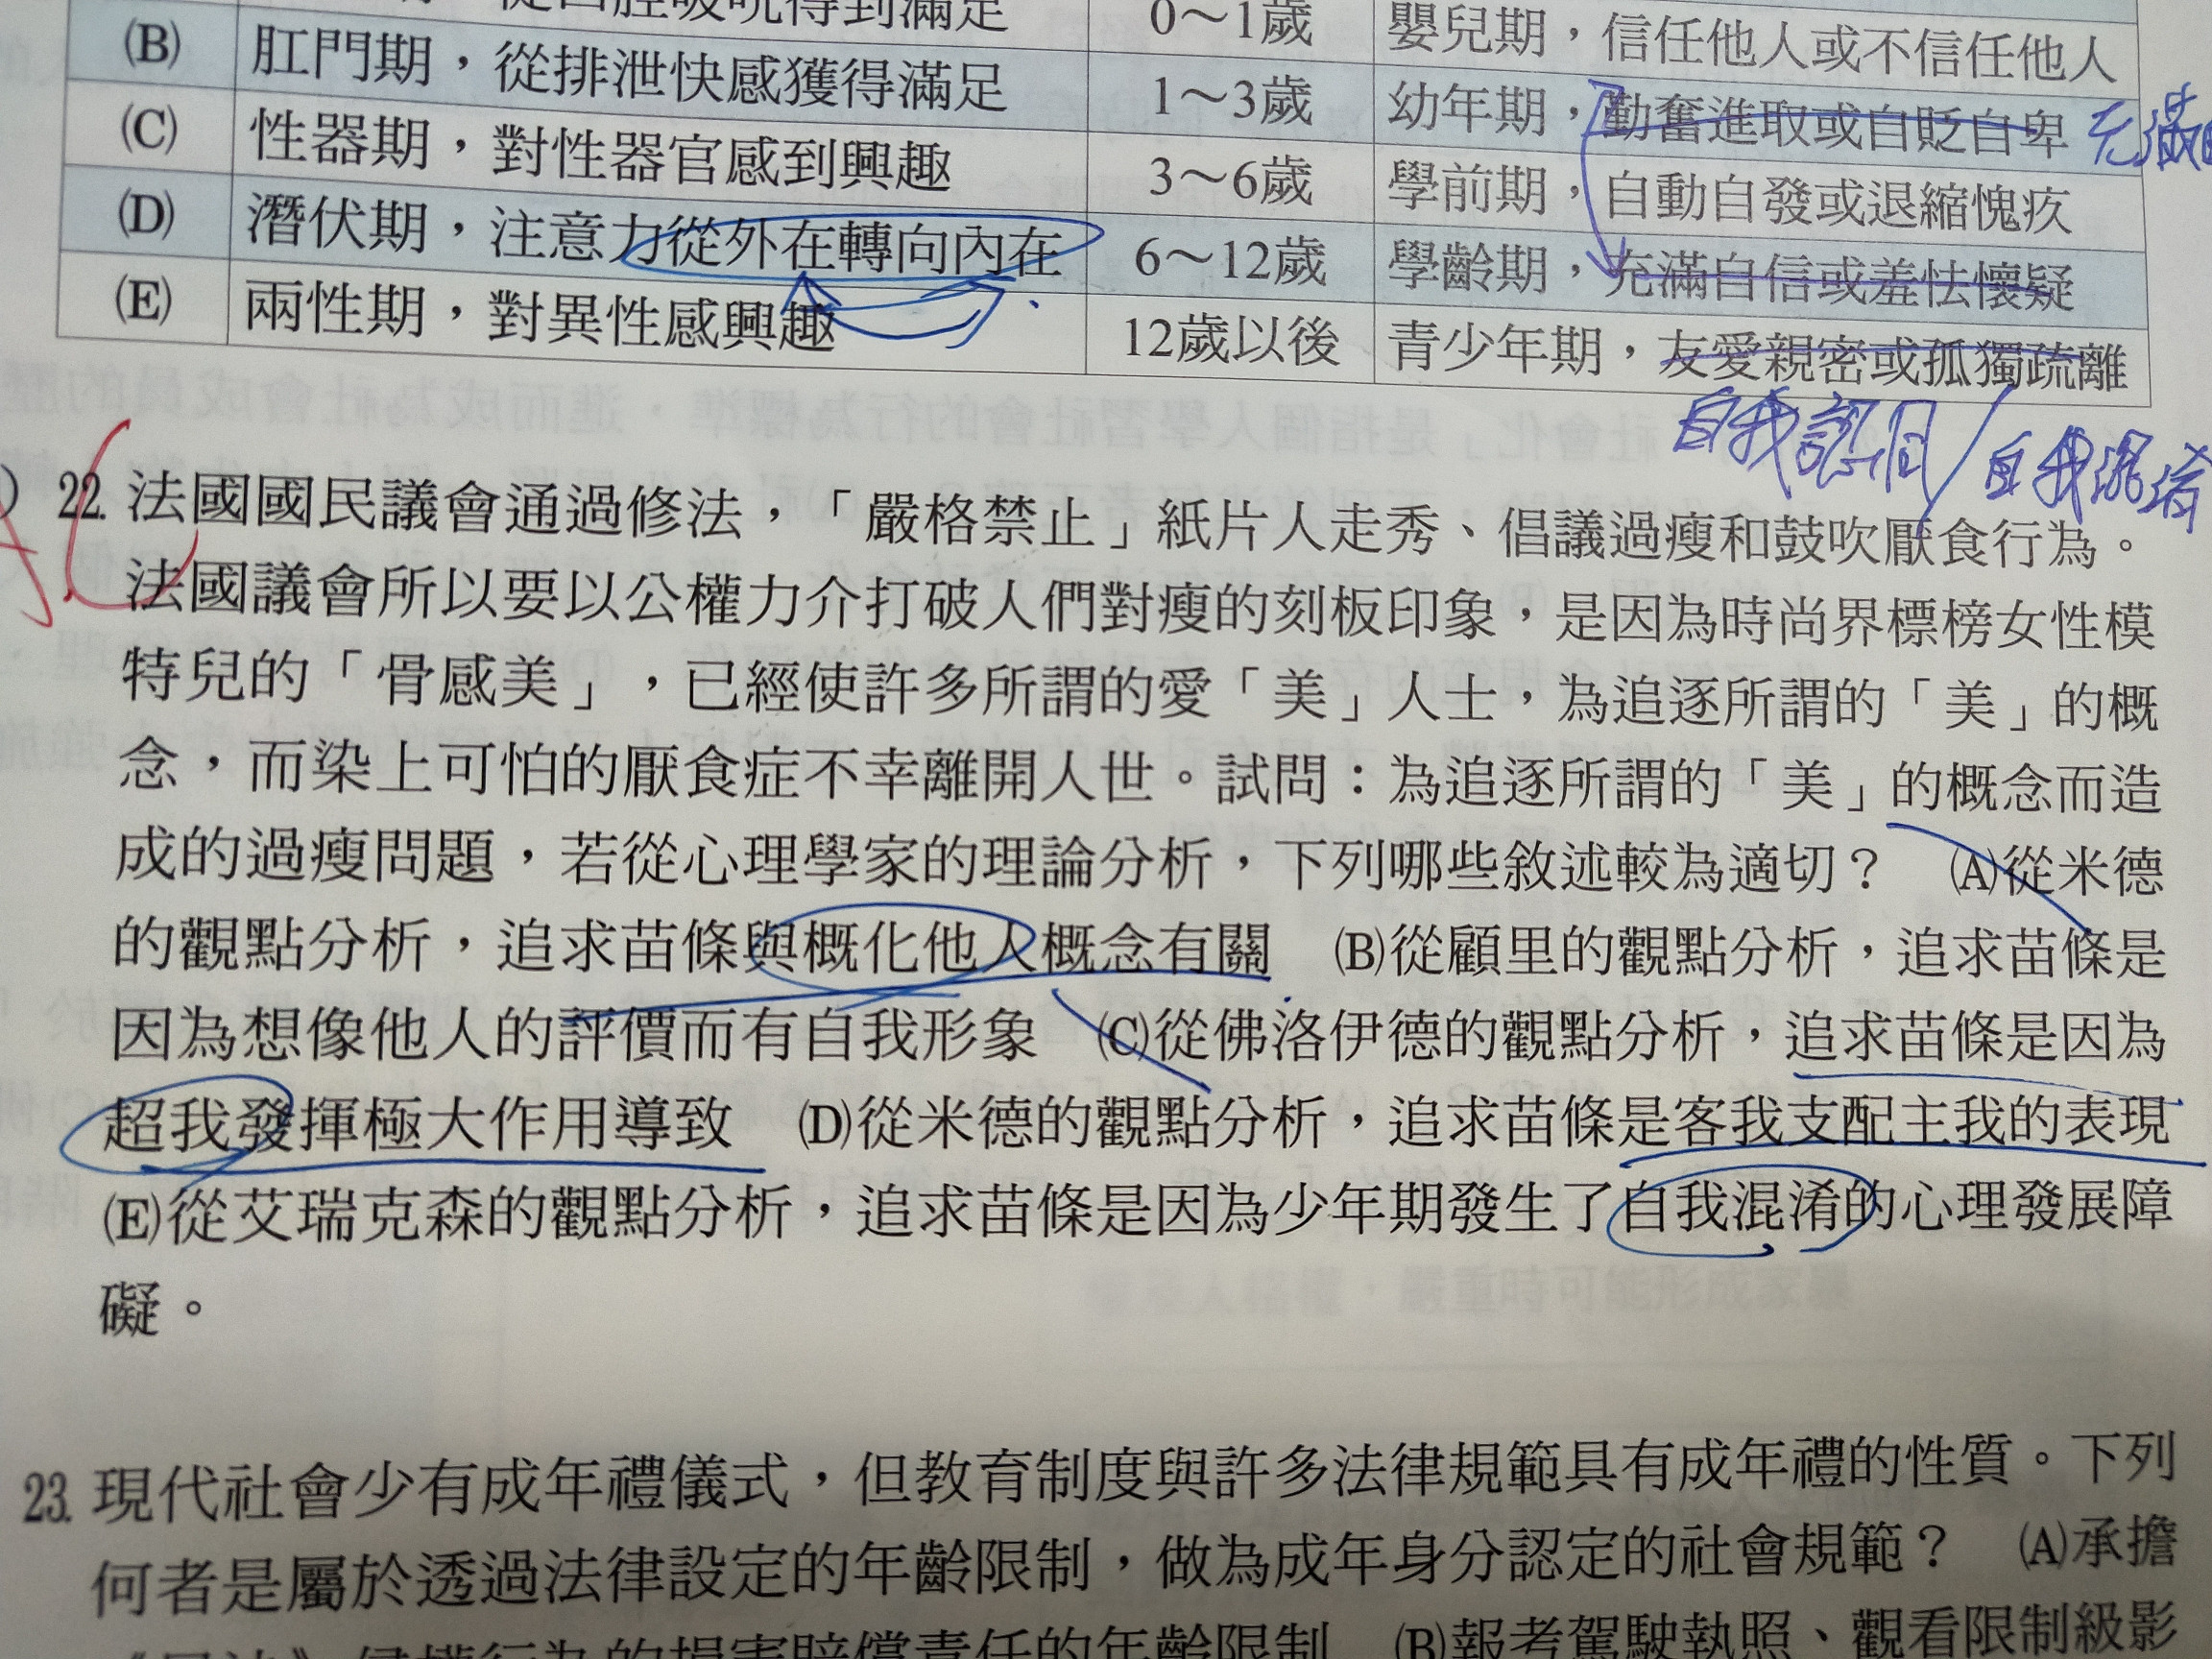 從口腔吸吮得到滿足 0～1歲 嬰兒期，信任他人或不信任他人
(B) 肛門期，從排泄快感獲得滿足 1～3歲 幼年期，勤奮進取或自貶自卑 充滿
(C) 性器期，對性器官感到興趣 3～6歲 學前期，自動自發或退縮愧疚
(D) 潛伏期，注意力從外在轉向內在 6～12歲 學齡期，充滿自信或羞怯懷疑
(E) 兩性期，對異性感興趣 12歲以後 青少年期，友愛親密或孤獨疏離
自我認同/自我混淆
22. 法國國民議會通過修法，「嚴格禁止」紙片人走秀、倡議過瘦和鼓吹厭食行為。
法國議會所以要以公權力介打破人們對瘦的刻板印象，是因為時尚界標榜女性模
特兒的「骨感美」，已經使許多所謂的愛「美」人士，為追逐所謂的「美」的概
念，而染上可怕的厭食症不幸離開人世。試問：為追逐所謂的「美」的概念而造
成的過瘦問題，若從心理學家的理論分析，下列哪些敘述較為適切？ (A)從米德
的觀點分析，追求苗條與概化他人概念有關 (B)從顧里的觀點分析，追求苗條是
因為想像他人的評價而有自我形象 (C)從佛洛伊德的觀點分析，追求苗條是因為
超我發揮極大作用導致 (D)從米德的觀點分析，追求苗條是客我支配主我的表現
(E)從艾瑞克森的觀點分析，追求苗條是因為少年期發生了自我混淆的心理發展障
礙。
23. 現代社會少有成年禮儀式，但教育制度與許多法律規範具有成年禮的性質。下列
何者是屬於透過法律設定的年齡限制，做為成年身分認定的社會規範？ (A)承擔
侵權行為的損害賠償責任的年齡限制 (B)報考駕駛執照、觀看限制級影